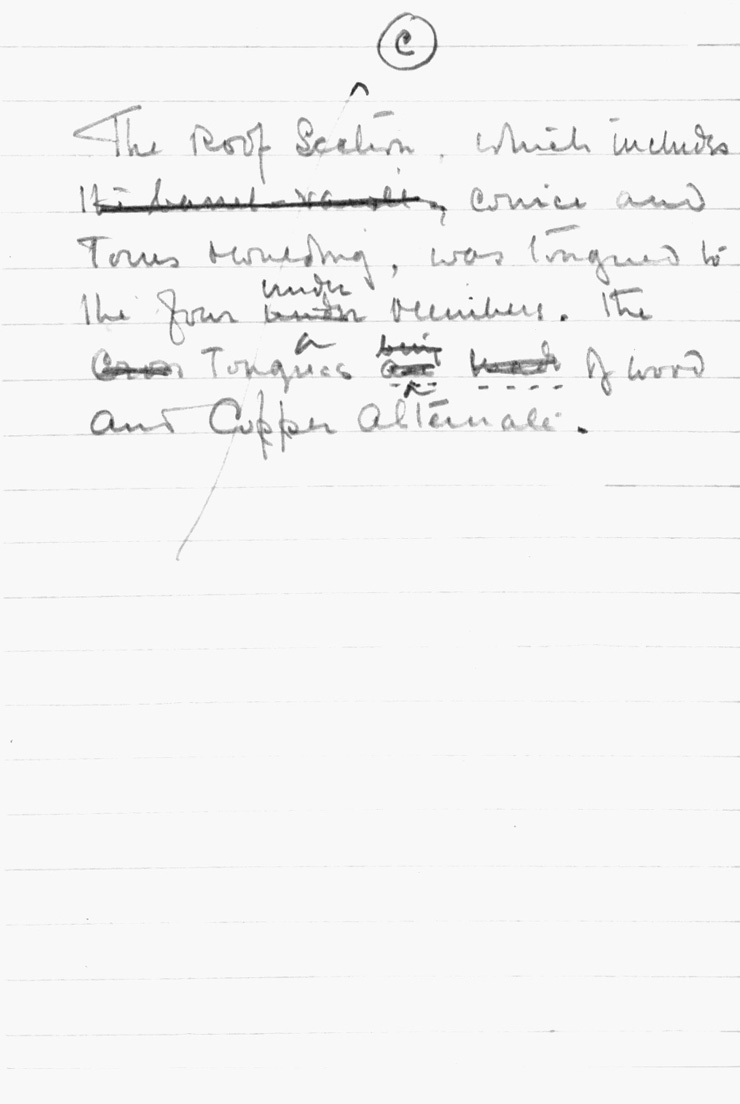 C
The Roof Section, which includes
the barrel-vault, conice and
Torus moulding, was tongued to
under
the four under members. The
Cross Tongues being are made of wood
and Copper Alternate.